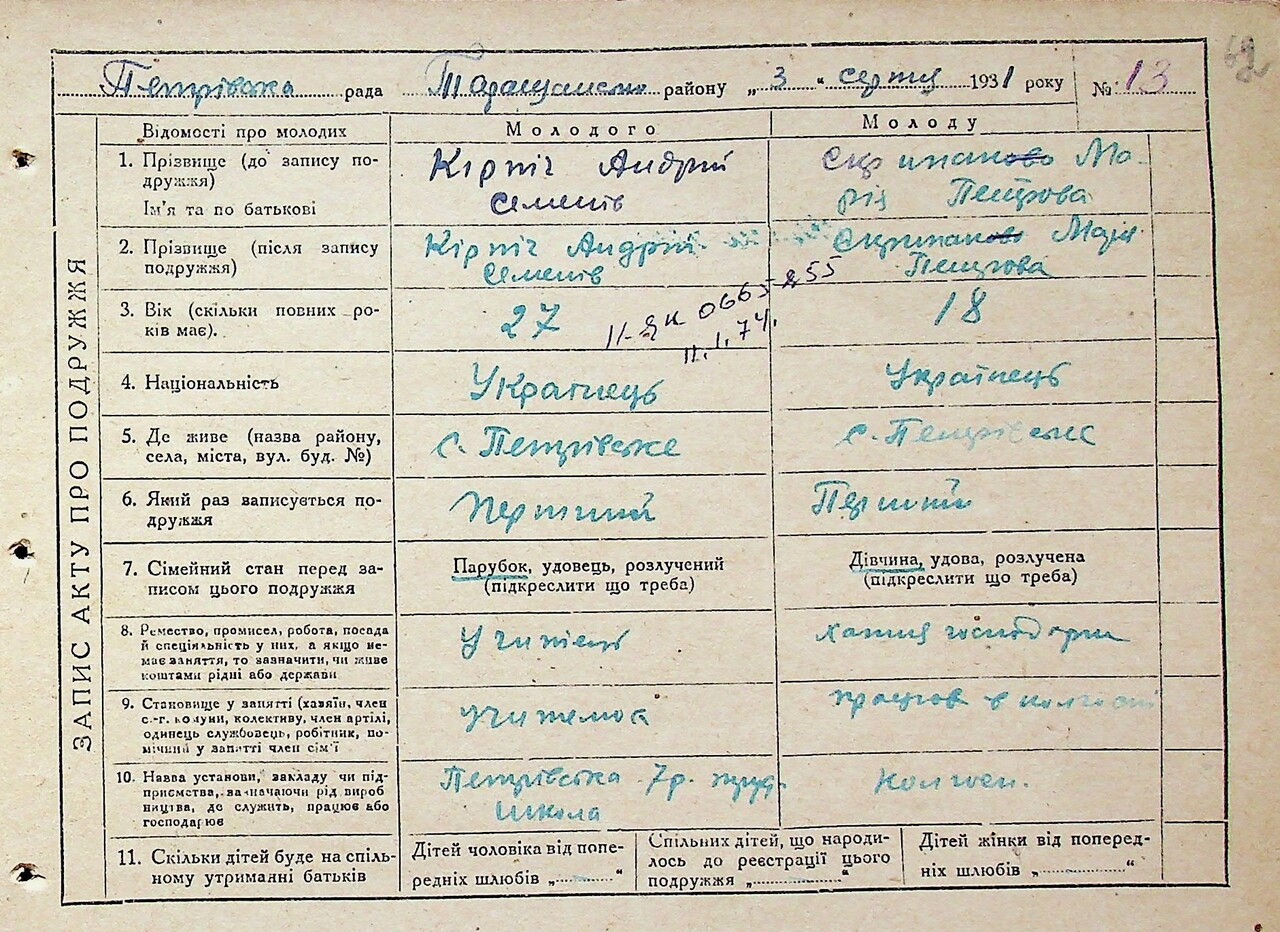 69
Петрівська рада Таращанськ району „3“ серпня 1931 року № 13
ЗАПИС АКТУ ПРО ПОДРУЖЖЯ
Відомості про молодих
Молодого
Молоду
1. Прізвище (до запису по-
дружжя)
Ім'я та по батькові
Кірпіч Андрій
Семенів
Ма-
рія Петрова
2. Прізвище (після запису
подружжя)
Кірпіч Андрій
Семенів
Марія
Петрова
3. Вік (скільки повних ро-
ків має).
27
18
11.1.74.
4. Національність
Українець
Українець
5. Де живе (назва району,
села, міста, вул. буд. №)
с. Петрівське
с. Петрівське
6. Який раз записується по-
дружжя
Перший
Перший
7. Сімейний стан перед за-
писом цього подружжя
Парубок, удовець, розлучений
(підкреслити що треба)
Дівчина, удова, розлучена
(підкреслити що треба)
8. Ремество, промисел, робота, посада
й спеціяльність у них, а якщо не-
має заняття, то зазначити, чи живе
коштами рідні або держави
Учитель
хатня господарка
9. Становище у занятті (хазяїн, член
с.-г. комуни, колективу, член артілі,
одинець службовець, робітник, по-
мічний у занятті член сім'ї
учителює
в колгоспі
10. Назва установи, закладу чи під-
приємства, зазначаючи рід вироб
ництва, де служить, працює або
господарює
Петрівська 7р. труд.
школа
колгосп.
11. Скільки дітей буде на спіль-
ному утриманні батьків
Дітей чоловіка від попе-
редніх шлюбів „ “
Спільних дітей, що народи-
лось до реєстрації цього
подружжя „ “
Дітей жінки від поперед-
ніх шлюбів „ “